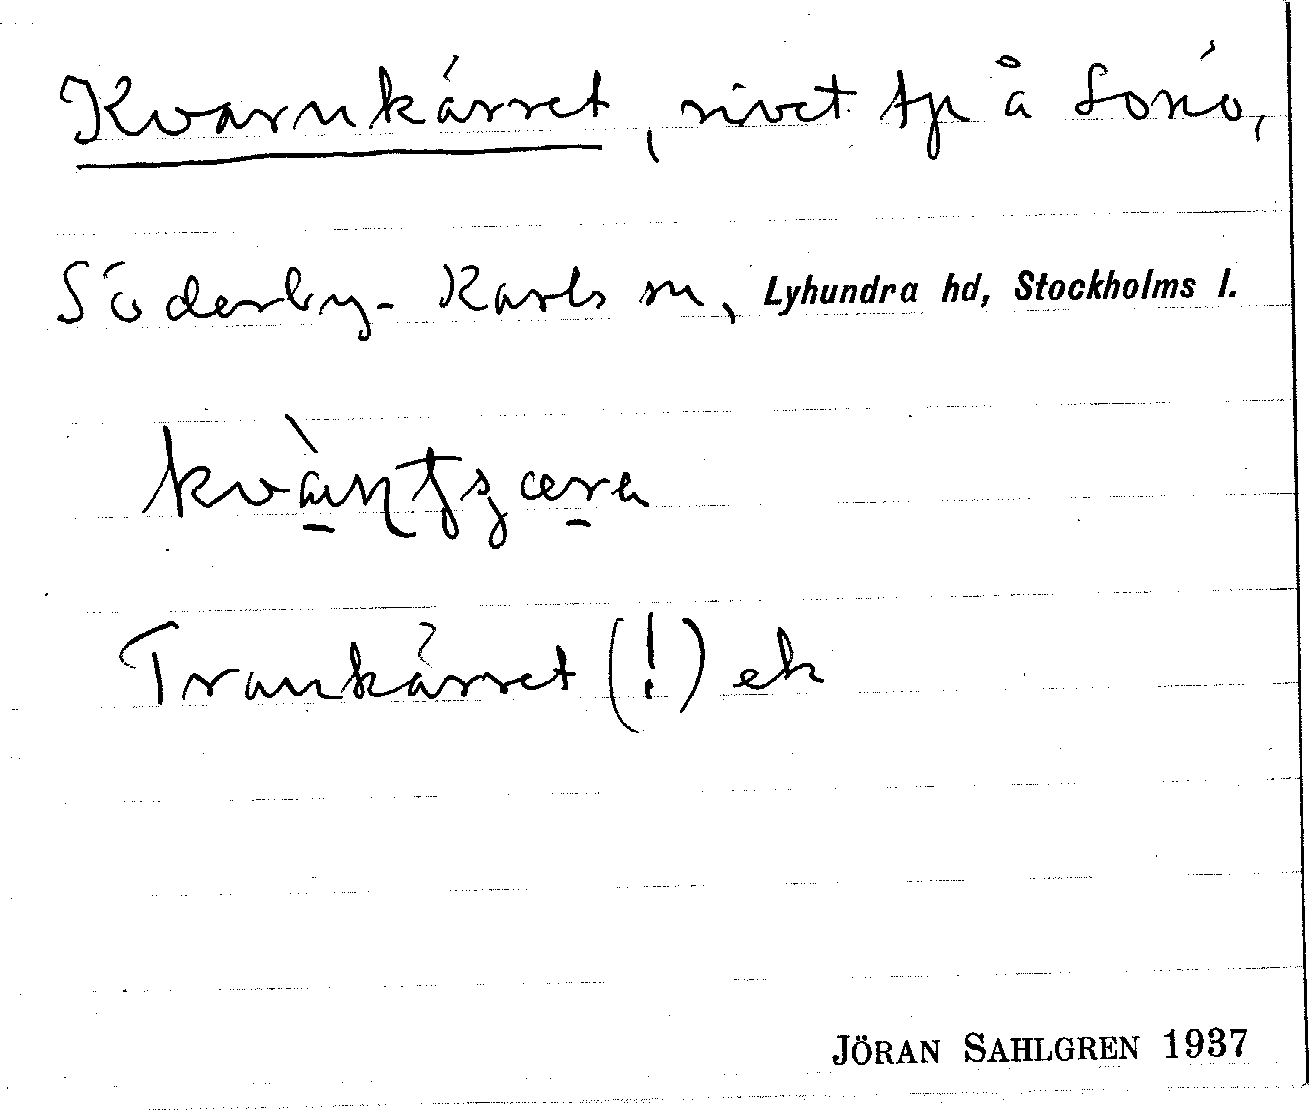 Kvarnkärret, rivet tp å Sonö,
Söderby-Karls sn, Lyhundra hd, Stockholms l.
Trankärret (!) ek
JÖRAN SAHLGREN 1937